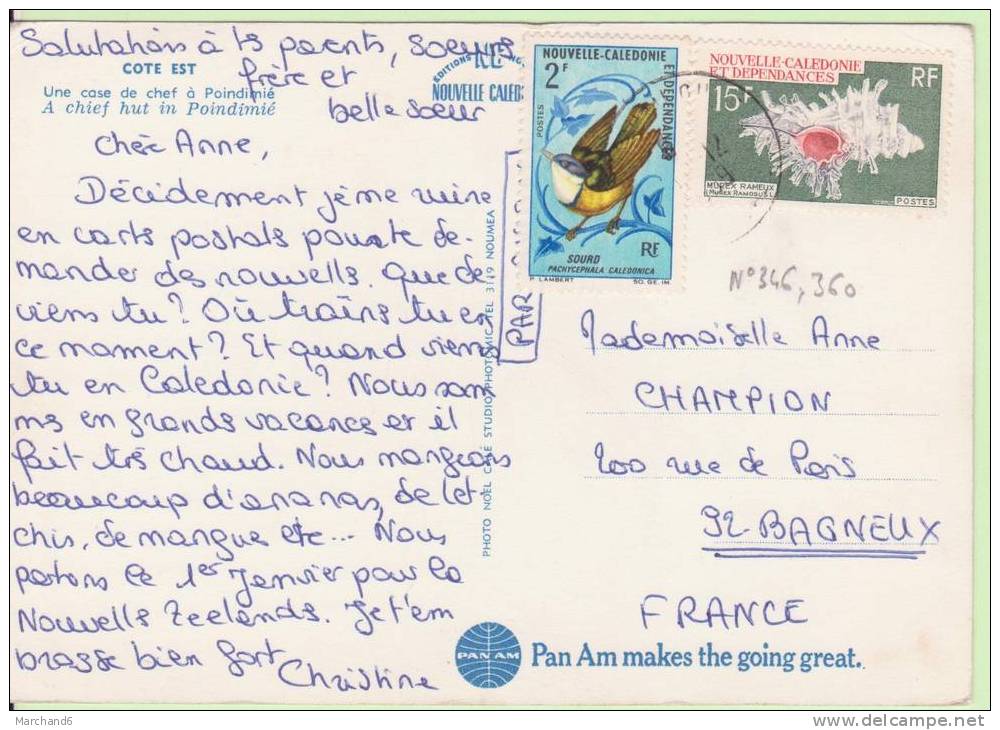 Salutations à ts parents, soeurs
frère et
belle soeur
COTE EST
Une case de chef à Poindimié
A chief hut in Poindimié
EDITIONS
NOUVELLE CALED
Chère Anne,
Décidement je me ruine
en carts postals pour te de-
mander des nouvells. Que de
viens tu? Où traîns tu en
ce moment? Et quand viens
tu en Caledonie? Nous som
ms en grands vacances et il
fait très chaud. Nous mangeons
beaucoup d'ananas, de let-
chis, de mangue etc... Nous
partons le 1er Janvier pour la
Nouvells Zeelands. Je t'em
brasse bien fort
Christine
PHOTO NOËL CASÉ STUDIO PHOTOMIC TEL 31-19 NOUMEA
PAR
NOUVELLE-CALEDONIE
ET DEPENDANCES
2F
POSTES
SOURD
PACHYCEPHALA CALEDONICA
RF
P. LAMBERT
SO. GE. IM.
NOUVELLE-CALEDONIE
ET DEPENDANCES
RF
15F
MUREX RAMEUX
(MUREX RAMOSUS L.)
POSTES
N° 346, 360
Mademoiselle Anne
CHAMPION
200 rue de Paris
92-BAGNEUX
FRANCE
PAN AM
Pan Am makes the going great.
Marchand6
www.delcampe.net